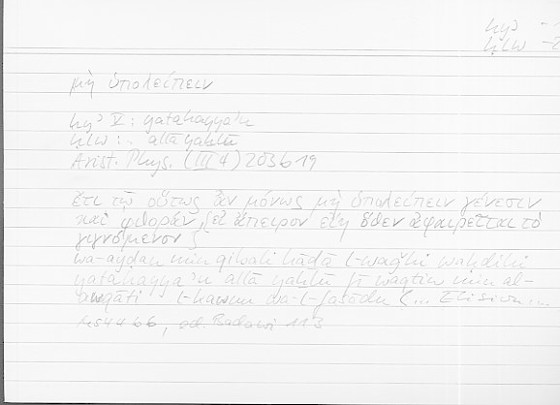 hyʾ
ḫlw
μὴ ὑπολείπειν
hyʾ V: yatahayyaʾu
ḫlw: allā yaḫlū
Arist. Phys. (III 4) 203b19
ἔτι τῷ οὕτως ἂν μόνως μὴ ὑπολείπειν γένεσιν
καὶ φθοράν, εἰ ἄπειρον εἴη ὅθεν ἀφαιρεῖται τὸ
γιγνόμενον
wa-ayḍan min qibali hāḏā l-waǧhi waḥdihi
yatahayyaʾu allā yaḫlū fī waqtin min al-
awqāti l-kawnu wa-l-fasādu (... Elision ...
, ed. Badawi 113